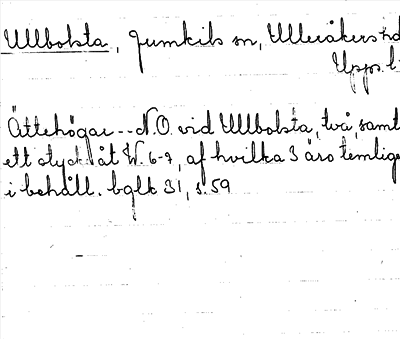 Ullbolsta, Jumkils sn, Ulleråkers hd
Upps. l.
Ättehögar -- N.O. vid Ullbolsta, två, samt
ett styck åt W. 6-7, af hvilka 3 äro temlige
i behåll. bglk 31, s. 59